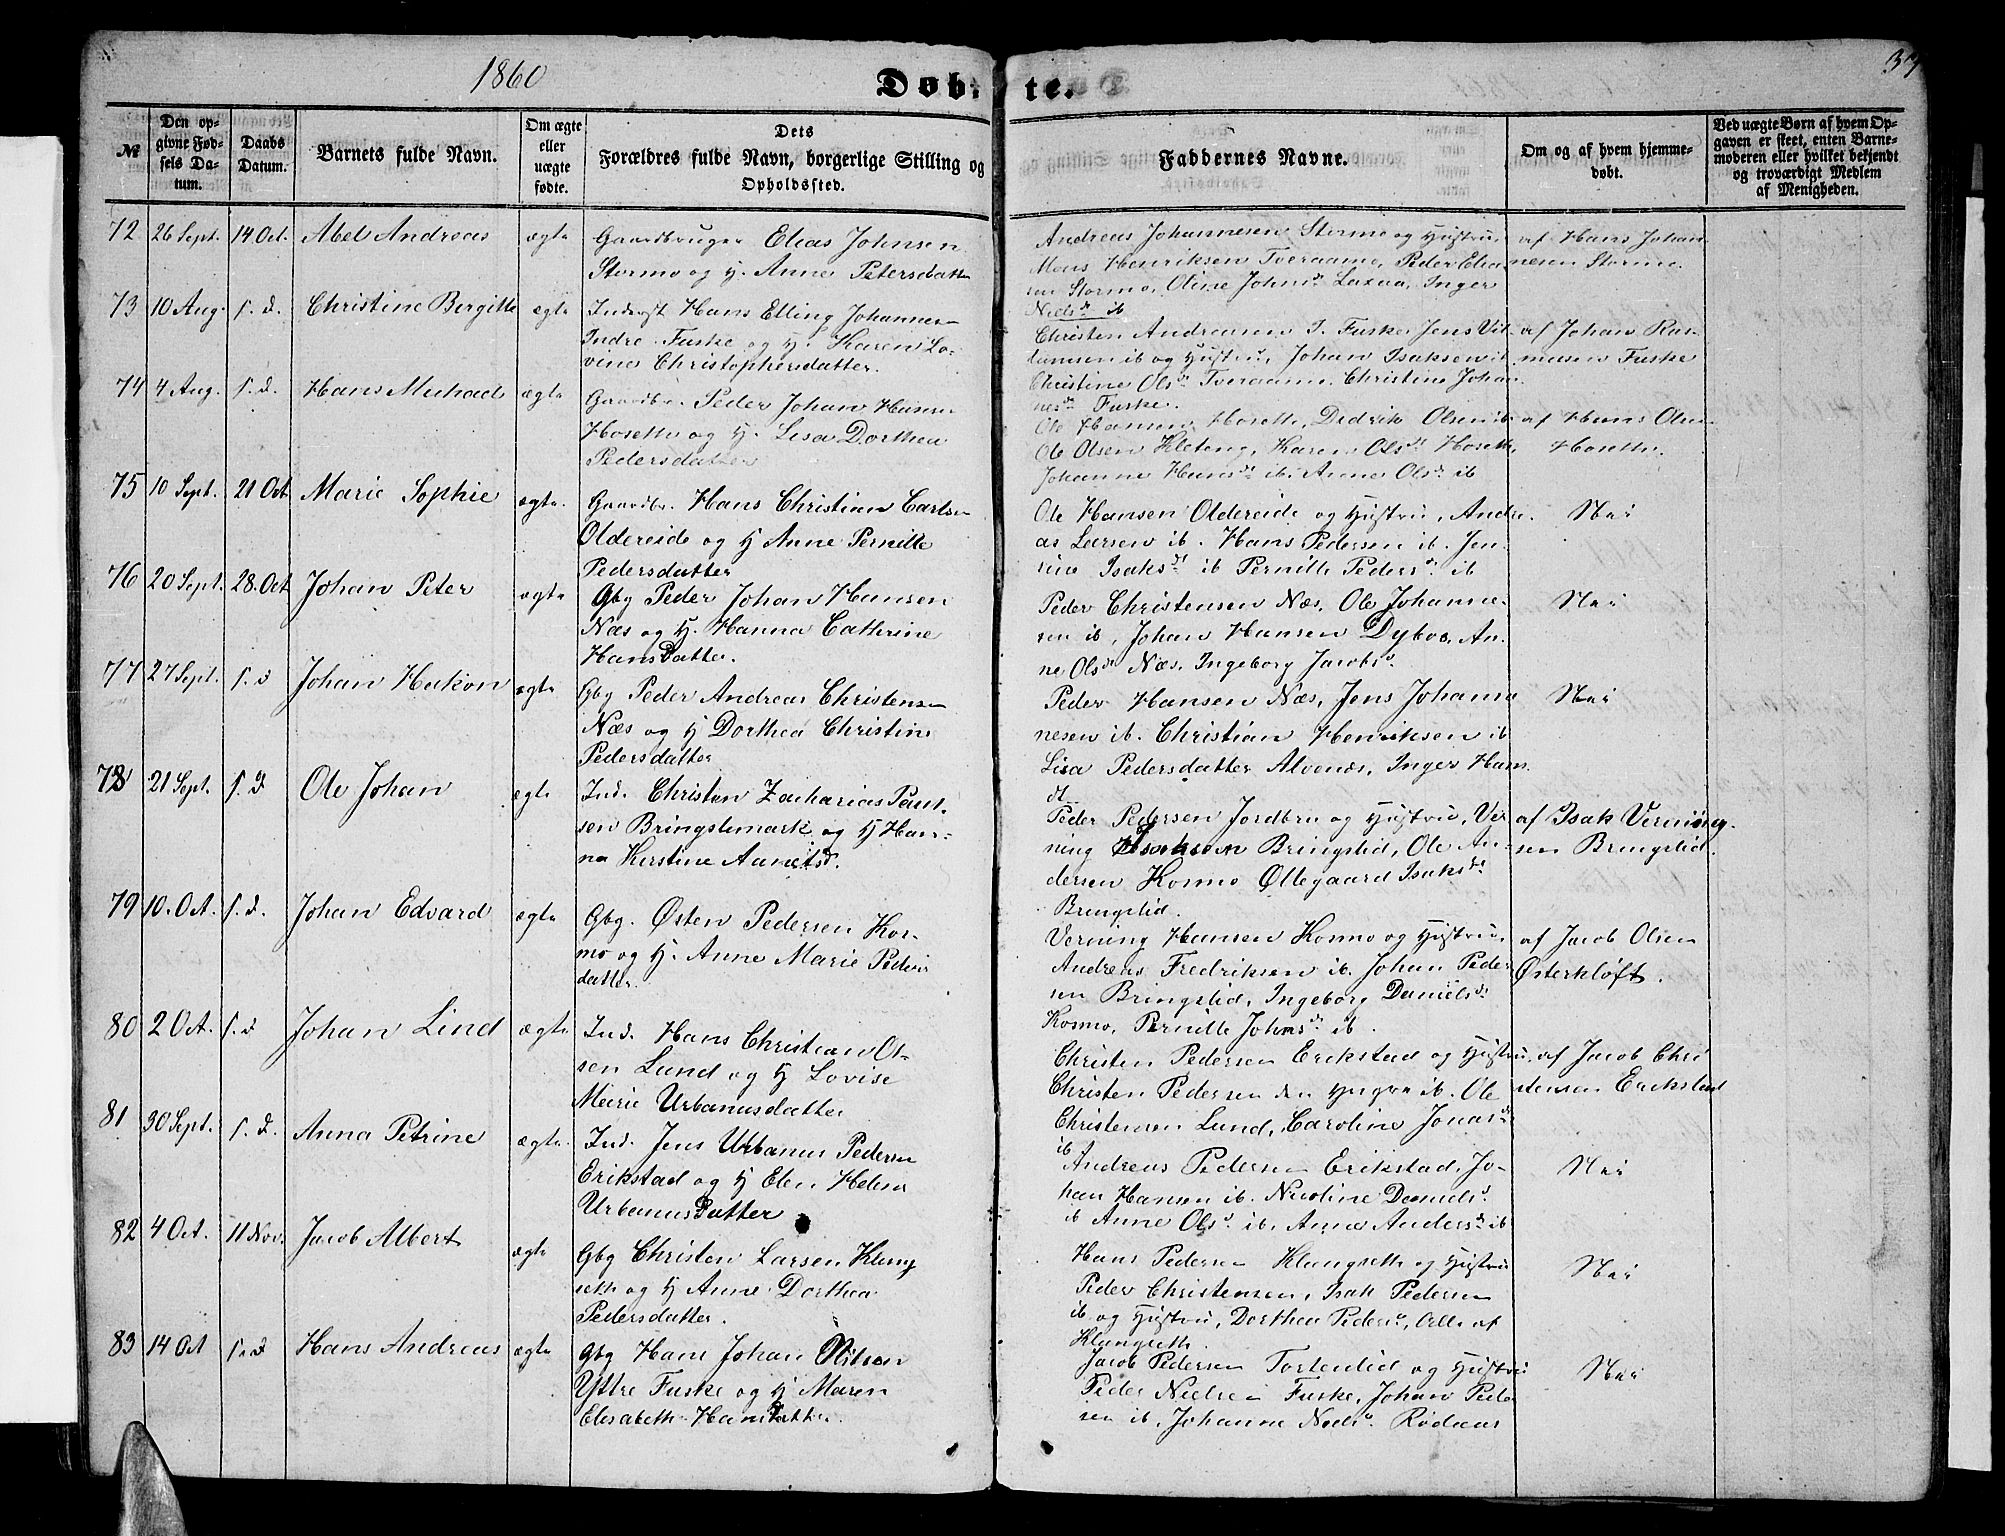 1860
Døbte.
33
№
Den opgivne Fødsels Datum.
Daabs Datum.
Barnets fulde Navn.
Om ægte eller uægte fødte.
Dets Forældres fulde Navn, borgerlige Stilling og Opholdssted.
Faddernes Navne.
Om og af hvem hjemmedøbt.
Ved uægte Børn af hvem Opgaven er skeet, enten Barnemoderen eller hvilket bekjendt og troværdigt Medlem af Menigheden.
72 26 Sept. 14 Oct. Abel Andreas ægte
Gaardbruger Elias Johnsen
Stormo og H. Anne Petersdatter
Andreas Johannesen Stormo og Hustru
Mons Henriksen Tveraamo, Peder Elia-
sen Stormo, Oline Johnsdr Laxaa, Inger
Nielsdr ib
af Hans Johan
nesen Stormo.
73 10 Aug. s. d. Christine Bergitte ægte
Inderst Hans Elling Johannesen
Indre Fuske og H. Karen Lo-
vina Christophersdatter.
Christen Andreasen I. Fuske, Jens Vil-
lumsen ib og Hustru, Johan Isaksen ib
Christine Olsdr Tveraamo, Christine Johan
nesdr Fuske.
af Johan Ras-
musen Fuske
74 4 Aug. s. d. Hans Michael ægte
Gaardbr. Peder Johan Hansen
Hosette og H. Lisa Dorthea
Pedersdatter
Ole Hansen Hosette, Didrik Olsen ib
Ole Olsen Kleteng, Karen Olsdr Hosette
Johanne Hansdr ib. Anne Olsdr ib
af Hans Olsen
Hosette.
75 10 Sept. 21 Oct Marie Sophie ægte.
Gaardbr. Hans Christian Carlsen
Oldereide og H Anne Pernille
Pedersdatter
Ole Hansen Oldereide og Hustru, Andre-
as Larsen ib. Hans Pedersen ib. Jen-
sine Isaksdr ib Pernille Pedersdr ib
Nei
76 20 Sept. 28. Oct Johan Peter ægte
Gbg Peder Johan Hansen
Næs og H. Hanna Cathrine
Hansdatter.
Peder Christensen Næs, Ole Johanne-
sen ib, Johan Hansen Dybvo, An-
ne Olsdr Næs, Ingeborg Jacobsdr
Nei
77 27 Sept. s. d Johan Hakon ægte
Gbg Peder Andreas Christensen
Næs og H Dorthea Christine
Pedersdatter
Peder Hansen Næs, Jens Johan-
nesen ib. Christian Henriksen ib
Lisa Pedersdatter Alvenæs, Inger Hans
dt
Nei
78 21 Sept. s. d Ole Johan ægte
Ind. Christen Zacharias Paul-
sen Bringslemark og H Han-
na Kirstine Aanetsd.
Peder Pedersen Jordbru og Hustru, Ver-
ning Isaksen Bringslid, Ole An-
dersen Kosmo Øllegaard Isaksdr
Bringslid.
af Isak Verning-
sen Bringslid.
79 10. Oct. s. d. Johan Edvard ægte
Gbg. Østen Pedersen Kos-
mo og H. Anne Marie Peder
datter.
Verning Hansen Kosmo og Hustru,
Andreas Fredriksen ib. Johan Peder
sen Bringslid, Ingeborg Danielsdr
Kosmo, Pernille Johnsdr ib.
af Jacob Olsen
Østerkløft.
80 2 Oct. s. d Johan Lind ægte
Ind. Hans Christian Ol-
sen Lund og H Lovise
Marie Urbanusdatter
Christen Pedersen Erikstad og Hustru,
Christen Pedersen den yngre ib. Ole
Christensen Lund, Caroline Jonasdr
ib
af Jacob Chri
stensen Erikstad
81 30 Sept. s. d. Anna Petrine ægte.
Ind. Jens Urbanus Pedersen
Erikstad og H Elen Helena
Urbanusdatter
Andreas Pedersen Erikstad, Jo-
han Hansen ib. Nicoline Danielsdr
ib Anne Olsdr ib. Anne Andersdr ib
Nei
82 4 Oct. 11 Nov. Jacob Albert ægte
Gbg Christen Larsen Klung
seth og H Anne Dorthea
Pedersdatter.
Hans Pedersen Klungseth og Hustru
Peder Christensen, Isak Pedersen
ib og Hustru, Dorthea Pedersdr, Alle af
Klungseth
Nei
83 14 Oct s. d Hans Andreas ægte
Gbg Hans Johan Nilsen
Yttre Fuske og H Maren
Elisabeth Hansdatter.
Jacob Pedersen Tortenlid og Hustru
Peder Nielsen Fuske, Johan Peder
sen ib, Johanne Nielsdr Rødaas
Nei